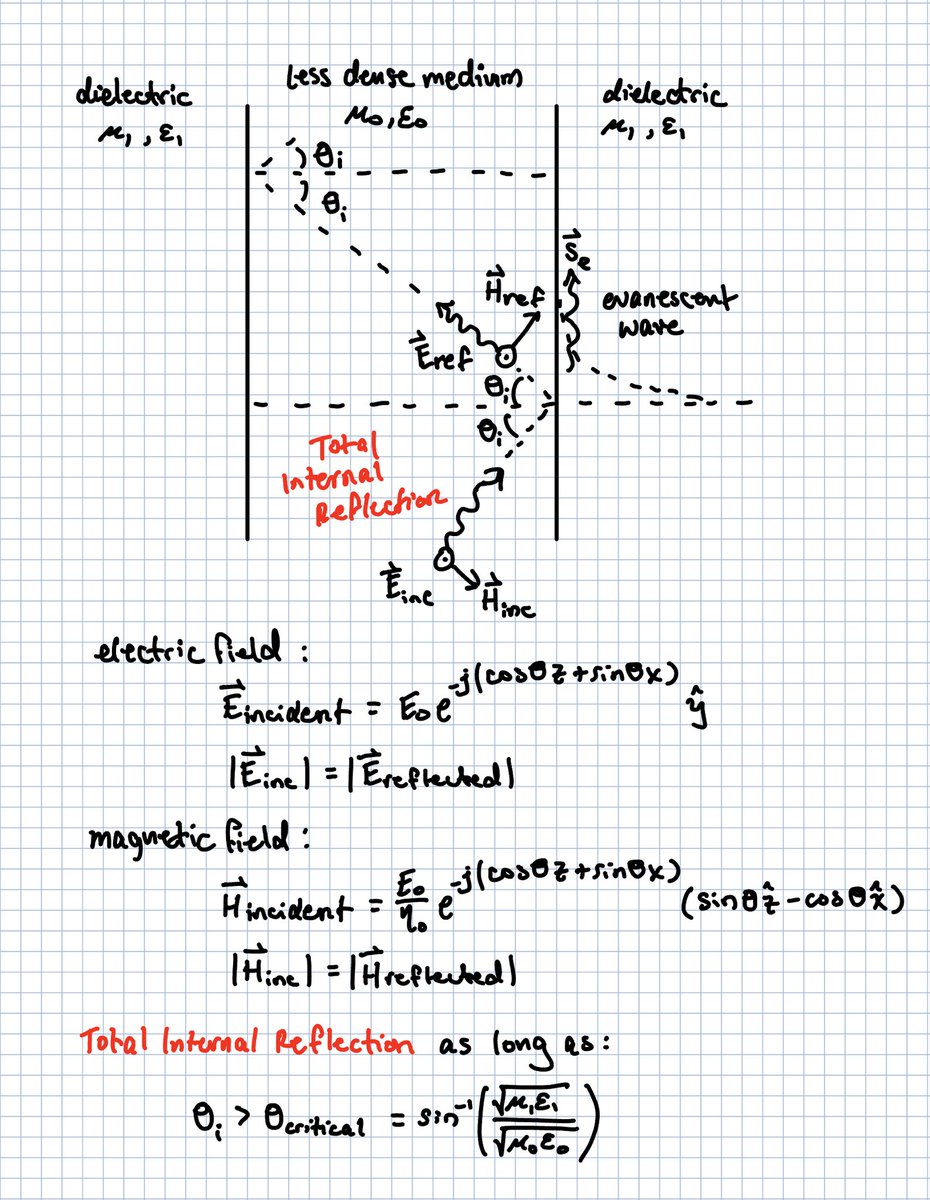 Less dense medium
dielectric
μ₀, ε₀
dielectric
μ₁, ε₁
μ₁, ε₁
θᵢ
θᵢ
S⃗ₑ
H⃗ref
evanescent
wave
E⃗ref
θᵢ
θᵢ
Total
Internal
Reflection
E⃗inc
H⃗inc
electric field :
E⃗incident = E₀ e^-j(cosθz + sinθx) ŷ
|E⃗inc| = |E⃗reflected|
magnetic field :
H⃗incident = E₀/η₀ e^-j(cosθz + sinθx) (sinθẑ - cosθx̂)
|H⃗inc| = |H⃗reflected|
Total Internal Reflection as long as :
θᵢ > θcritical = sin⁻¹(√μ₁ε₁ / √μ₀ε₀)